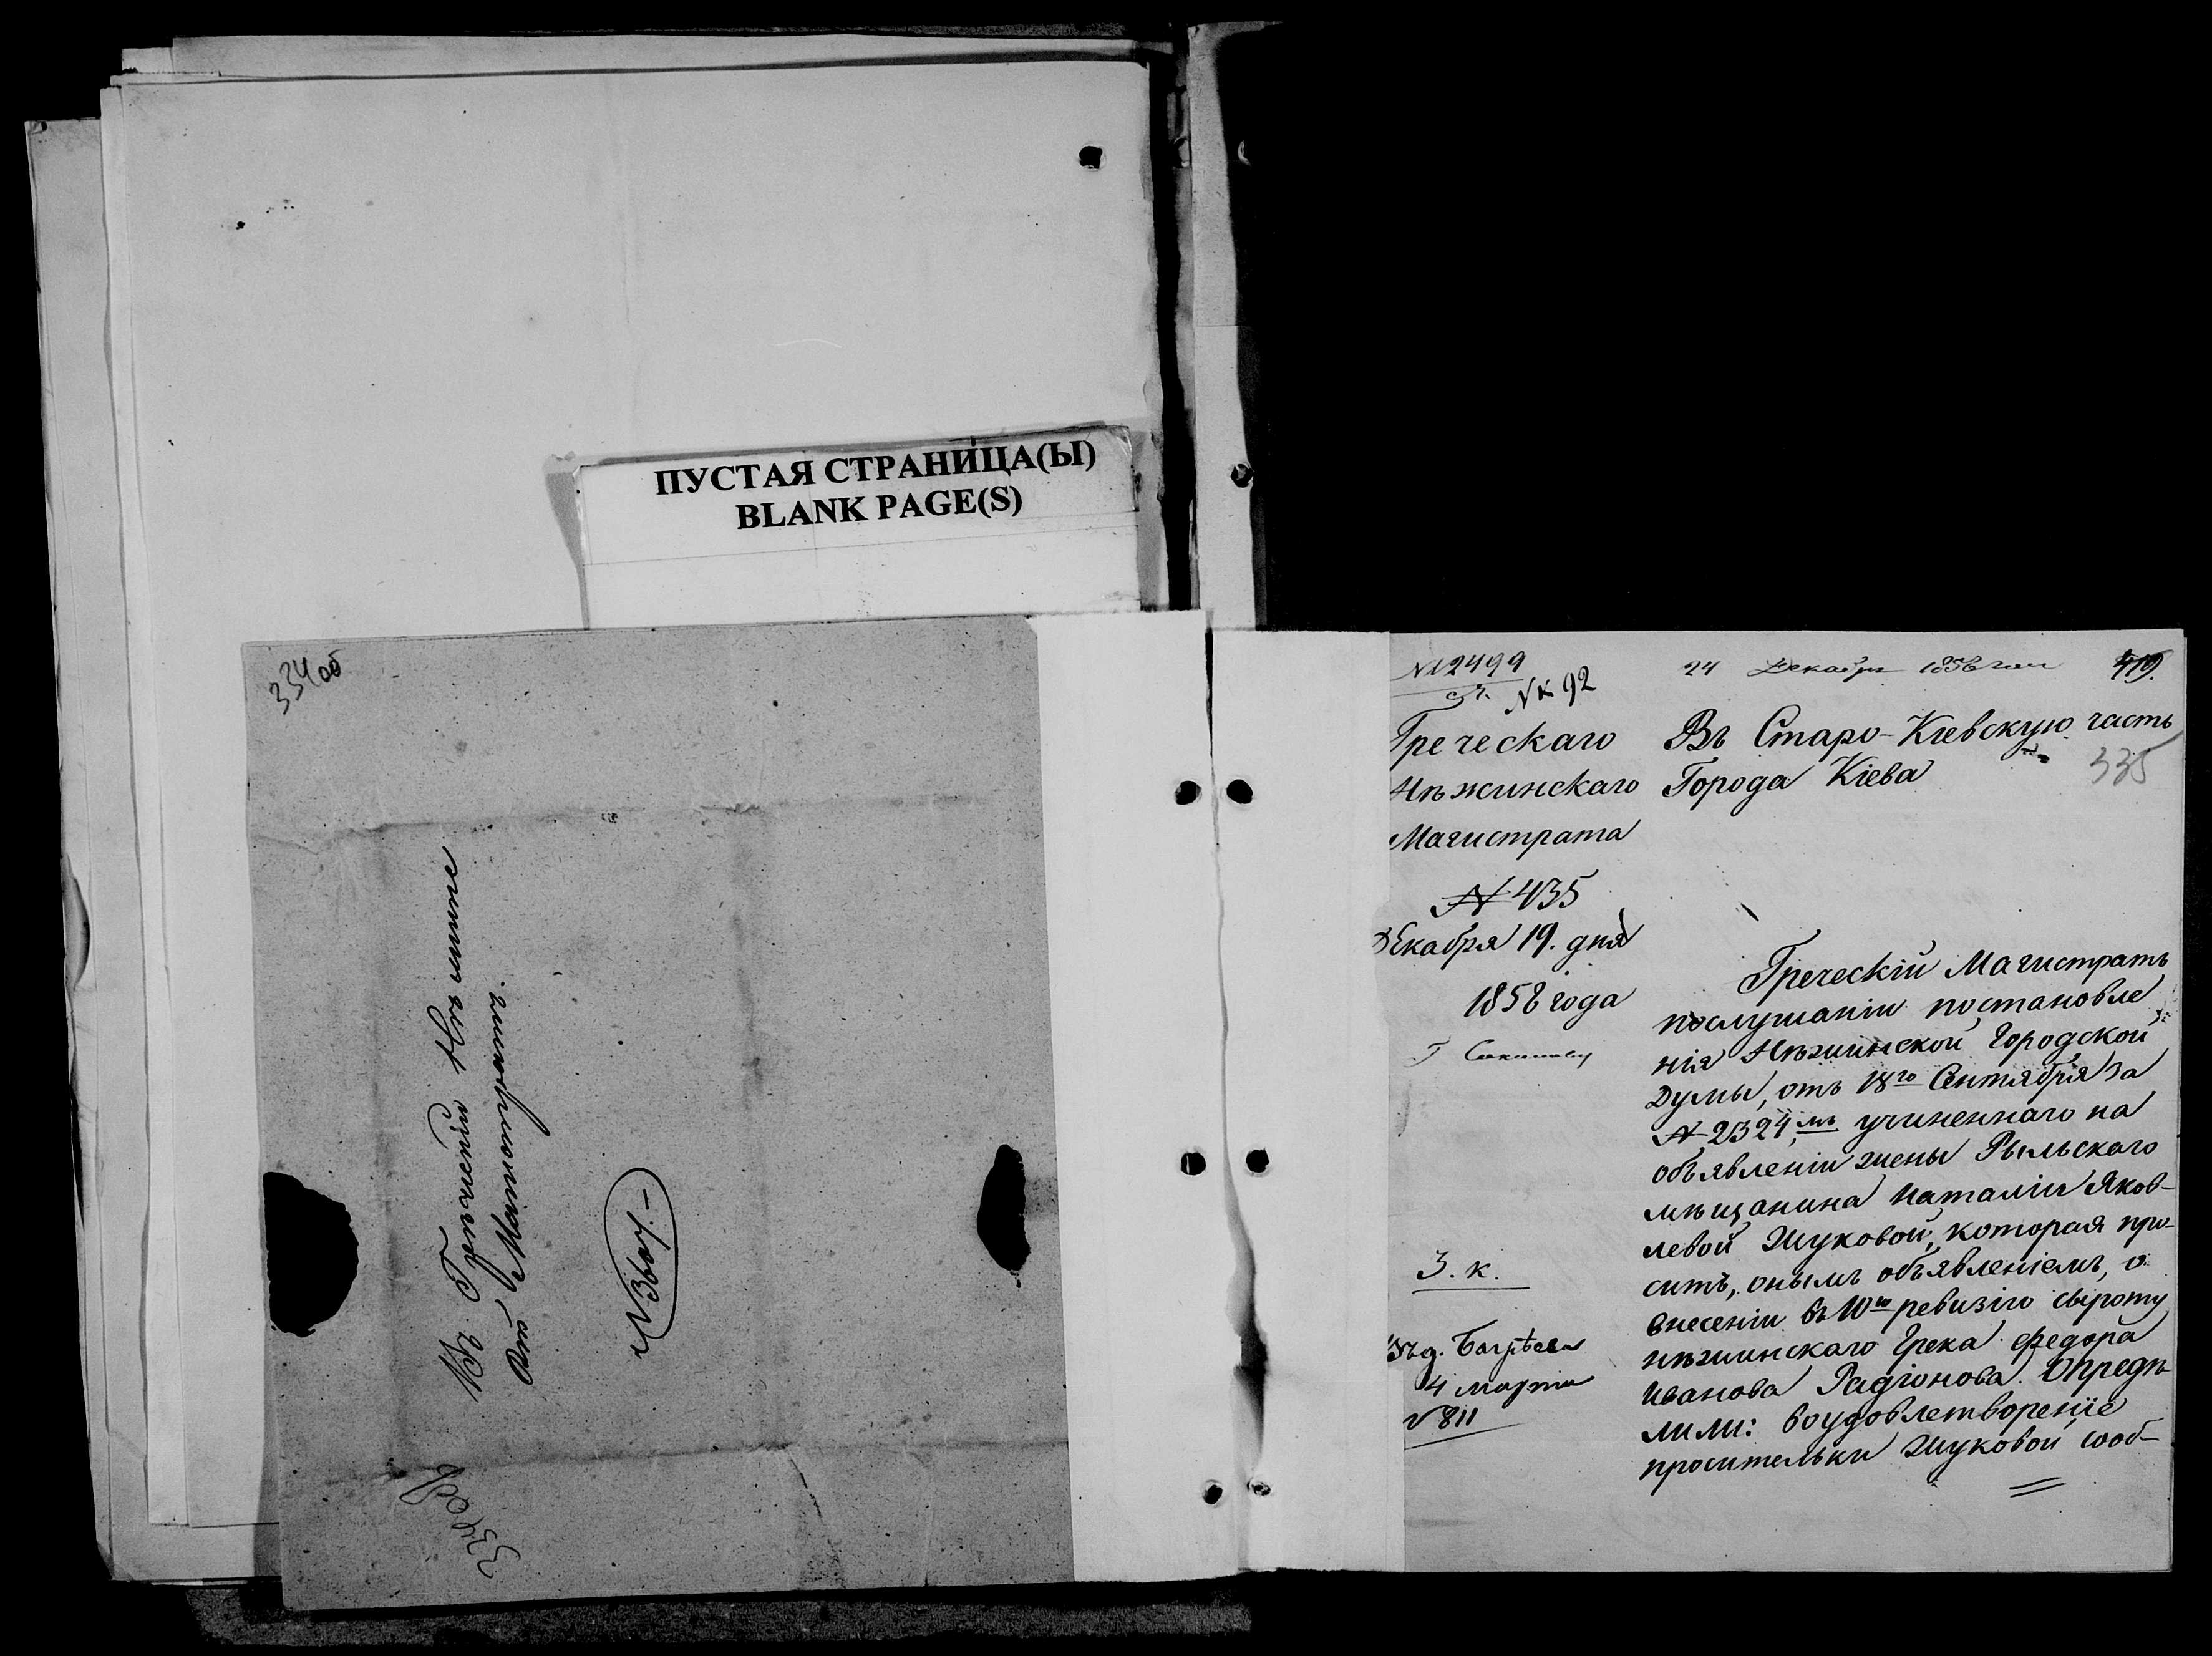 ПУСТАЯ СТРАНИЦА(Ы)
BLANK PAGE(S)
334 об
Въ Греческій Нѣжинскій
Магистратъ
№ 2499
№ 92
24 Декабря 1858 года
419.
335
Греческаго
Нѣжинскаго
Магистрата
№ 435
Декабря 19. дня
1858 года
З. к.
4 марта
№ 811
Въ Старо-Кіевскую часть
Города Кіева
Греческій Магистратъ
послушаніи постановле
нія Нѣжинской Городской
Думы, отъ 18го Сентября за
№ 2324мъ, учиненнаго на
объявленіи жены Рыльскаго
мѣщанина Наталіи Яков-
левой Жуковой, которая про-
ситъ, онымъ объявленіемъ, о
внесеніи въ 10ю ревизію сыроту
нѣжинскаго Грека Федора
Иванова Радіонова. Опредѣ
лили: воудовлетвореніе
просительки Жуковой сооб-